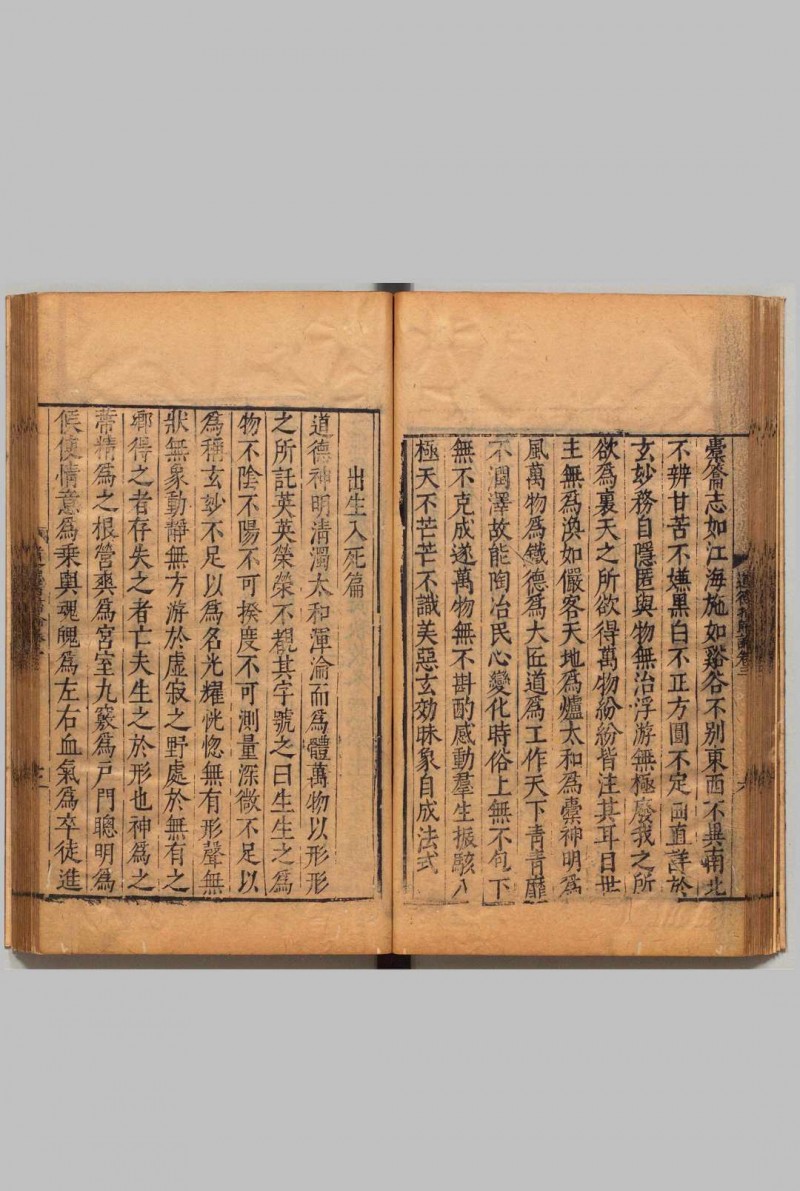 道德指歸論卷三
橐籥志如江海施如谿谷不別東西不異南北
不辨甘苦不嫌黑白不正方圓不定曲直詳於
玄妙務自隱匿與物無治浮游無極廢我之所
欲爲裏天之所欲得萬物紛紛皆注其耳目世
主無爲渙如儼客天地爲爐太和爲橐神明爲
風萬物爲鐵德爲大匠道爲工作天下青青靡
不潤澤故能陶冶民心變化時俗上無不包下
無不克成遂萬物無不斟酌感動羣生振駭八
極天不芒芒不識美惡玄効昧象自成法式
出生入死篇
道德神明清濁太和渾淪而爲體萬物以形形
之所託英英榮榮不覩其字號之曰生生之爲
物不陰不陽不可揆度不可測量深微不足以
爲稱玄妙不足以爲名光耀恍惚無有形聲無
狀無象動靜無方游於虛寂之野處於無有之
鄉得之者存失之者亡夫生之於形也神爲之
蔕精爲之根營爽爲宮室九竅爲戶門聰明爲
候使情意爲乘輿魂魄爲左右血氣爲卒徒進